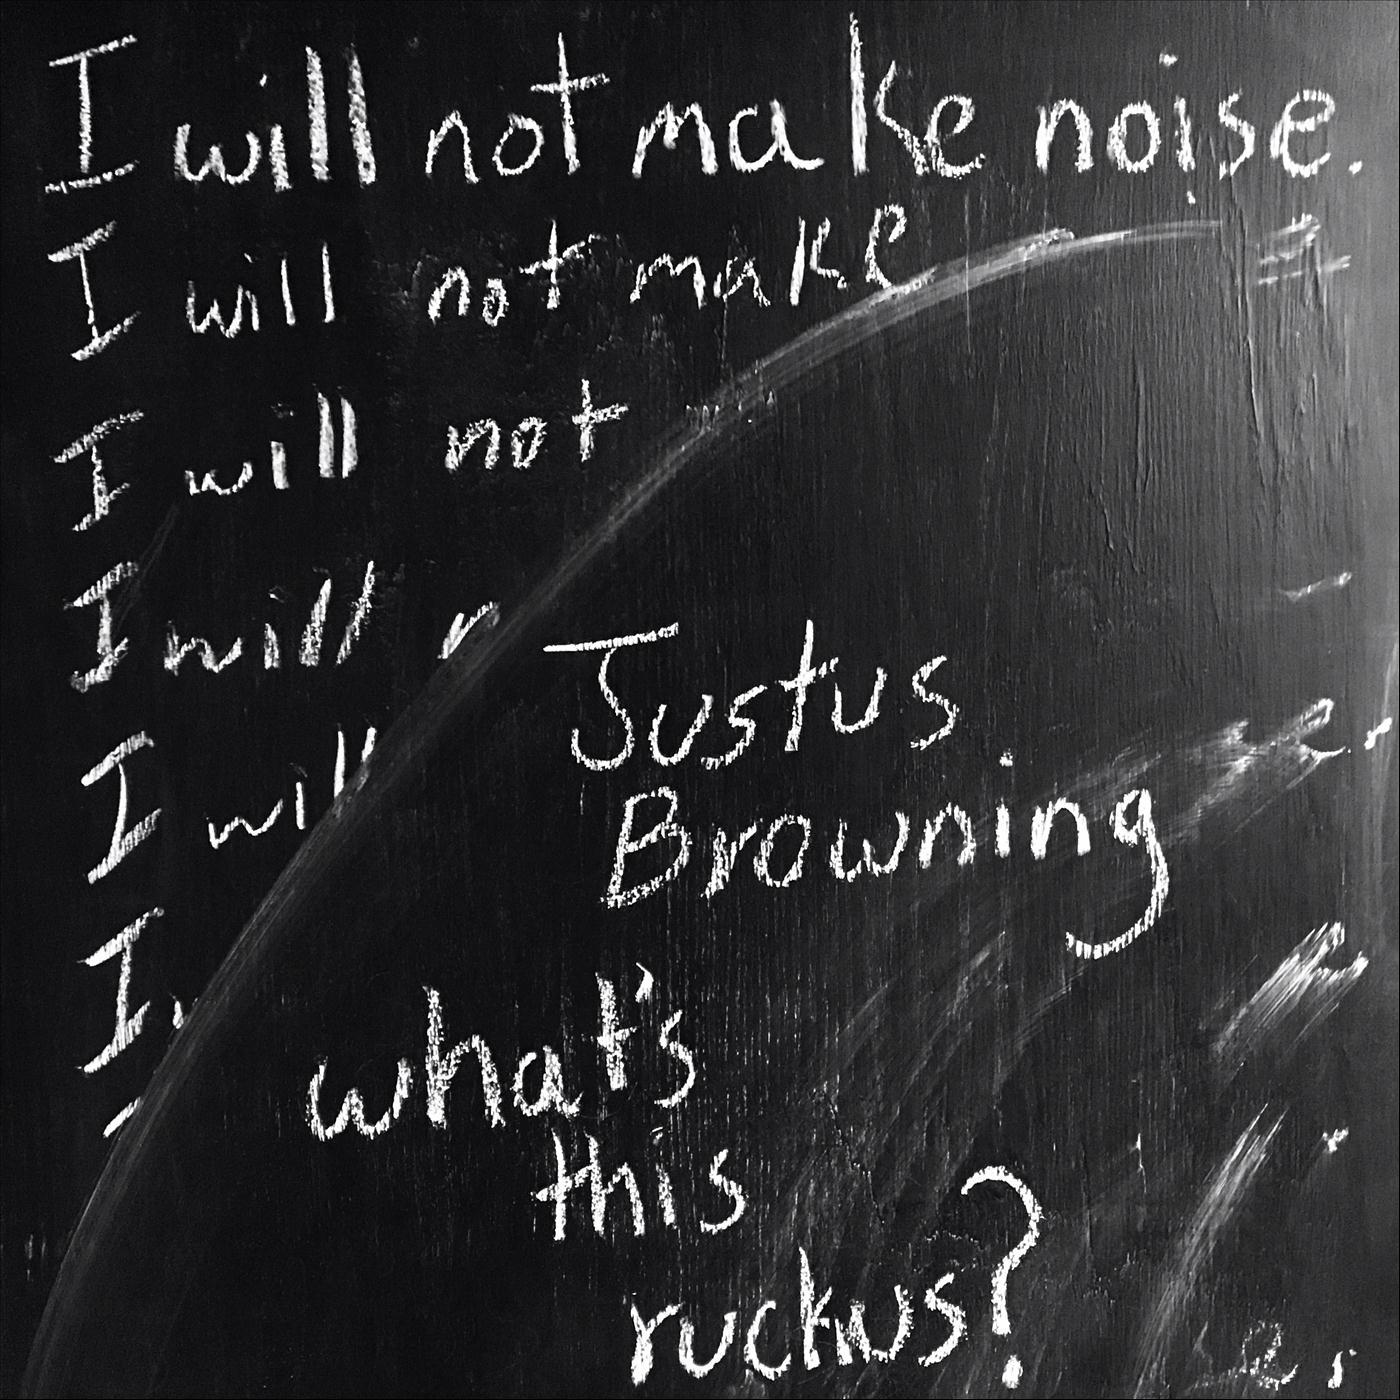 I will not make noise.
I will not make
I will not
I will
I will
I
Justus
Browning
what's
this
ruckus?